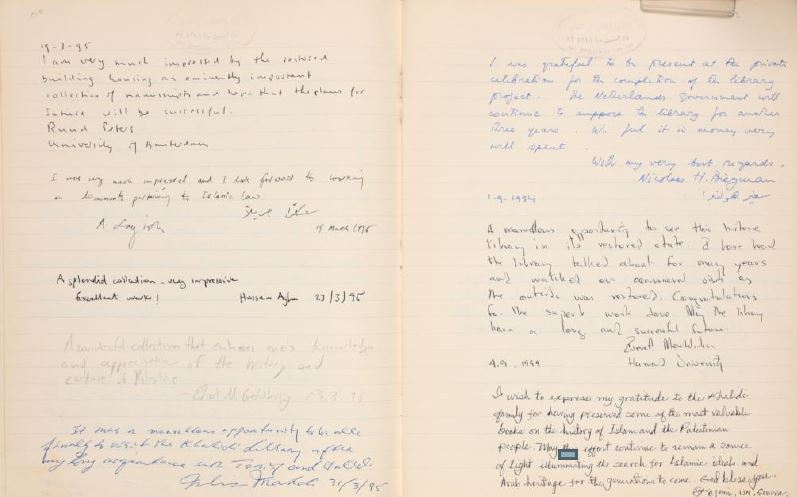 19-3-95
I am very much impressed by the restored
building housing an eminently important
collection of manuscripts and hope that the plans for
future will be successful.
Ruud Peters
University of Amsterdam
I was very much impressed and I look forward to working
on documents pertaining to Islamic law
A Layish
19 March 1995
A splendid collection - very impressive
Excellent work!
Hussein 23/3/95
A wonderful collection that enhances one's knowledge
and appreciation of the history and
culture of Palestine
- Eliot M Goldberg 23.3.95
It was a marvellous opportunity to be able
finally to visit the Khalidi Library after
my long acquaintance with and
31/3/95
I was grateful to be present at the private
celebration for the completion of the library
project. The Netherlands Government will
continue to support the library for another
three years. We feel it is money very
well spent.
With my very best regards,
Nikolaos H. Biegman
1.9.1994
A marvellous opportunity to see this historic
library in its restored state. I have heard
the library talked about for many years
and watched on occasional visits as
the outside was restored. Congratulations
for the superb work done. May the library
have a long and successful future.
Everett Mendelsohn
4.9.1994
Harvard University
I wish to express my gratitude to the Khalidi
family for having preserved some of the most valuable
books on the history of Islam and the Palestinian
people. May effort continue to remain a source
of light illuminating the search for Islamic ideals and
Arab heritage for the generations to come. God bless you.
UN, Geneva